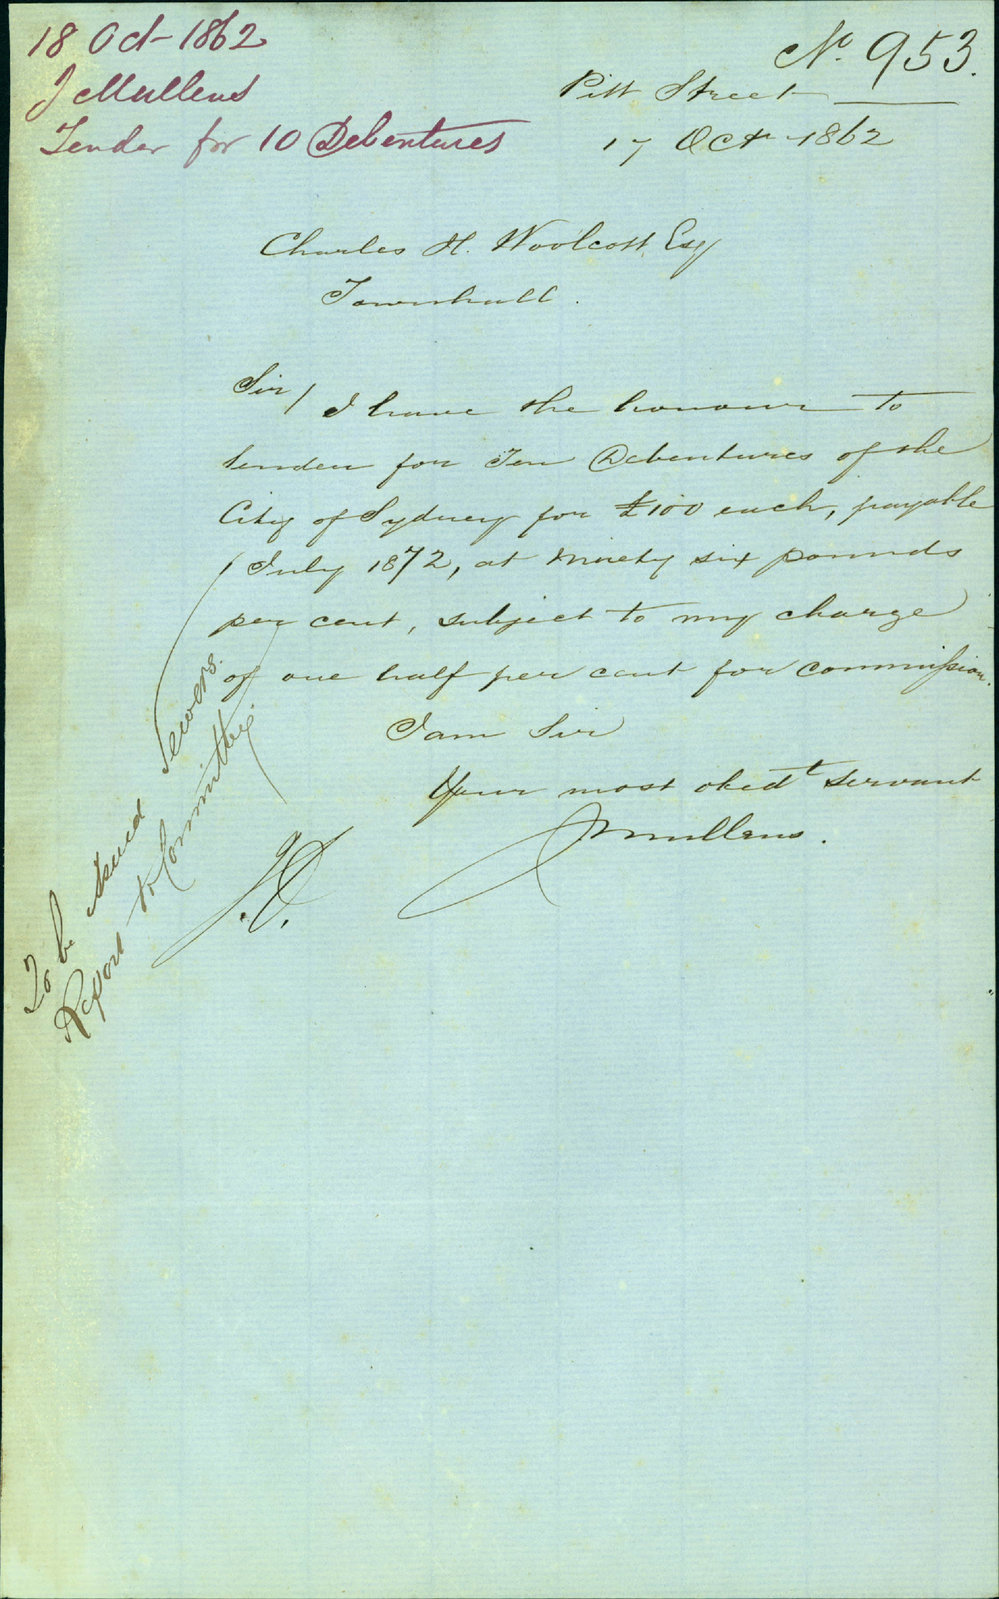 18 Oct 1862
J Mullens
Tender for 10 Debentures
No. 953.
Pitt Street
17 Oct 1862
Charles H. Woolcott, Esq
Townhall.
Sir/ I have the honour to
tender for Ten Debentures of the
City of Sydney for £100 each, payable
1 July 1872, at ninety six pounds
per cent, subject to my charge
of one half per cent for commission.
I am Sir
Your most obedt servant
J Mullens.
To be issued Sewers.
Report to Committee.